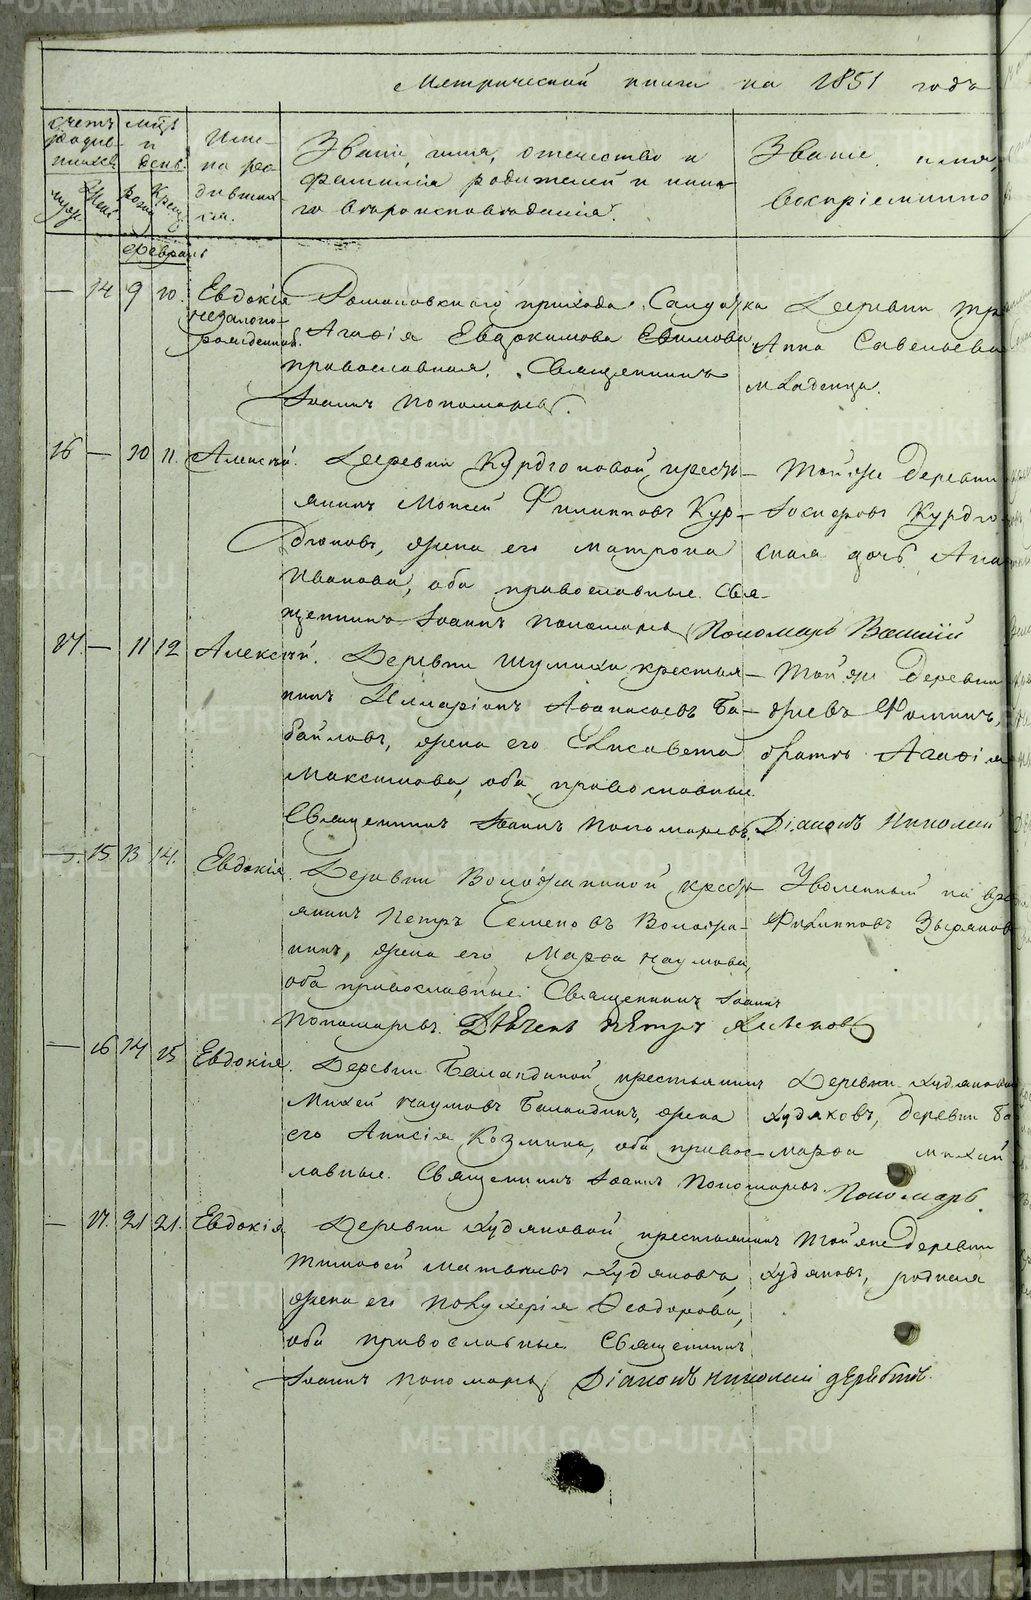 Метрической книги на 1851 годъ
Счетъ родив-шихся
Муж.
Жен.
Мцъ и день
рожд.
Крещ.
Име-на ро-дивших-ся.
Званіе, имя, отечество и
фамилія родителей и како-
го вѣроисповѣданія.
Званіе, имя,
Воспріемнико
Февраль
— 14 9 10. Евдокія
незаконо-
рожденная.
Романовскаго прихода Салдатка
Агафія Евдокимова Евимова,
православная. Священникъ
Іоаннъ Пономаревъ.
Деревни
Анна Савельева
младенца.
16 — 10 11. Алексѣй.
Деревни Курдюковой, кресть-
янинъ Моисей Филипповъ Кур-
дюковъ, жена его Матрона
Иванова, оба православные. Свя-
щенникъ Іоаннъ Пономаревъ
Той же деревни
Курдю
дочь
Пономарь Василій
17 — 11 12 Алексѣй.
Деревни Шумиха, крестья-
нинъ Илларіонъ Афанасьевъ Ба-
байловъ, жена его Елисавета
Максимова, оба православные.
Священникъ Іоаннъ Пономаревъ.
Той же деревни
Фоминъ,
Агафія
Діаконъ Николай
— 15. 13 14. Евдокія.
Деревни Воложаниной кресть
янинъ Петръ Семеновъ Воложа-
нинъ, жена его Марфа Наумова,
оба православные. Священникъ Іоаннъ
Пономаревъ. Дьячекъ Петръ
Уволенный на вре
Филипповъ Зырянов
— 16 14 15 Евдокія.
Деревни Баландиной, крестьянинъ
Михей Наумовъ Баландинъ, жена
его Анисія Козмина, оба правос-
лавные. Священникъ Іоаннъ Пономаревъ.
Деревни Худяково
Худяковъ, деревни Ба
Марфа Михай
Пономарь
— 17. 21 21. Евдокія
Деревни Худяковой, крестьянинъ
Тимофей Матвѣевъ Худяковъ,
жена его Полухерія Ѳеодорова,
оба православные. Священникъ
Іоаннъ Пономаревъ
Той же Деревни
Худяковъ, родная
Діаконъ Николай
METRIKI.GASO-URAL.RU